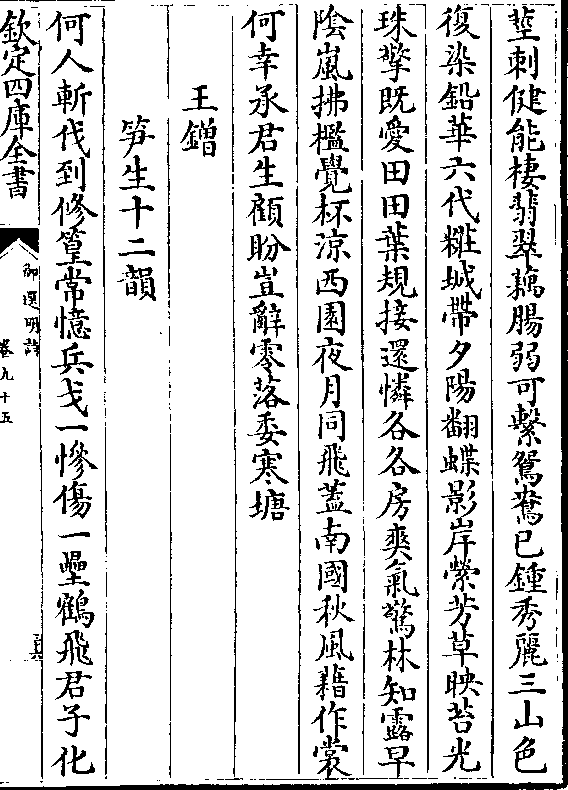 莖刺健能棲翡翠藕腸弱可繫鴛鴦已鍾秀麗三山色
復染鉛華六代糚城帶夕陽翻蝶影岸縈芳草映苔光
珠擎既愛田田葉規接還憐各各房爽氣驚林知露早
陰嵐拂檻覺杯涼西園夜月同飛蓋南國秋風藉作裳
何幸承君生顧盼豈辭零落委寒塘
王鏳
笋生十二韻
何人斬伐到修篁常憶兵戈一慘傷一壘鶴飛君子化
欽定四庫全書
御選明詩
卷九十五